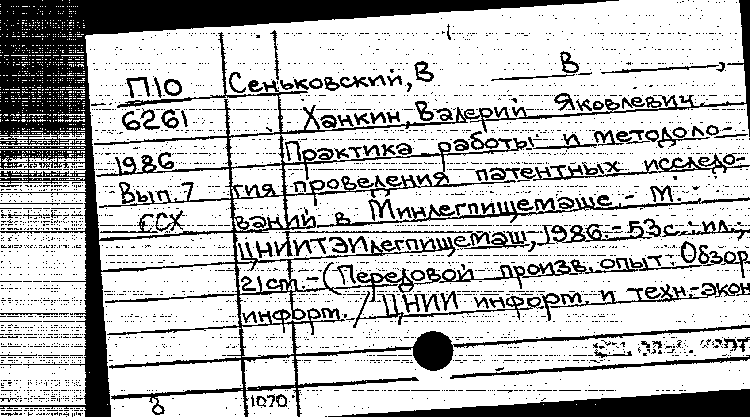 П10 Сеньковский, В В ,
6261 Ханкин, Валерий Яковлевич
1986 Практика работы и методоло-
Вып. 7 гия проведения патентных исследо-
ССХ ваний в Минлегпищемаше. - М. :
ЦНИИТЭИлегпищемаш, 1986. - 53 с. : ил.;
21 cm. - (Передовой произв. опыт : Обзор
информ. / ЦНИИ информ. и техн.-экон
8 1070